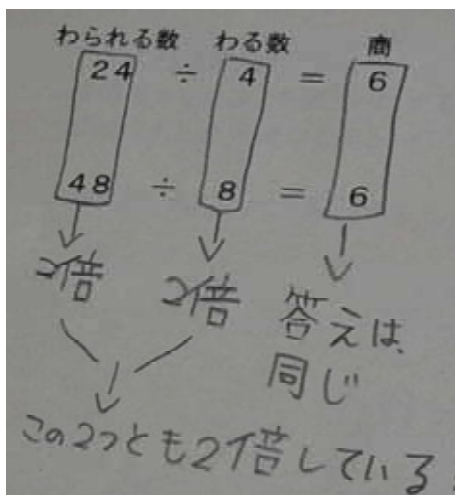 わられる数 わる数 商
24 ÷ 4 = 6
48 ÷ 8 = 6
2倍 2倍 答えは、
同じ
この2つとも2倍している。